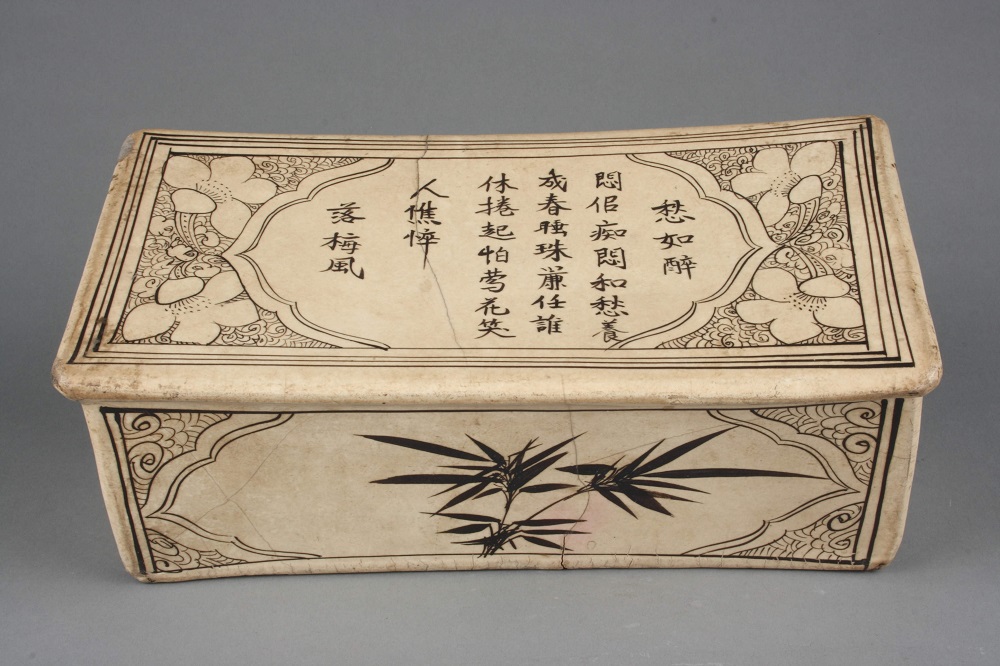 愁如醉
悶倡痴悶和愁養
成春睡珠簾任誰
休捲起怕鶯花笑
人憔悴
落梅風